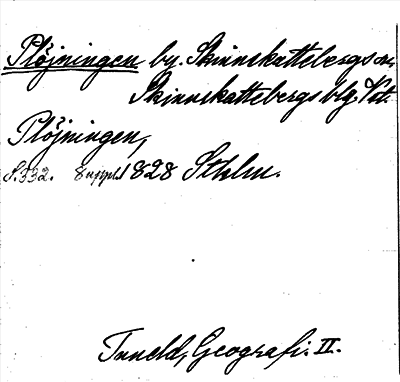 Plöjningen by. Skinnskattebergs sn,
Skinnskattebergs blg. Vst.
Plöjningen,
S. 332. Suppl. 1828 Sthlm.
Tuneld, Geografi. II.